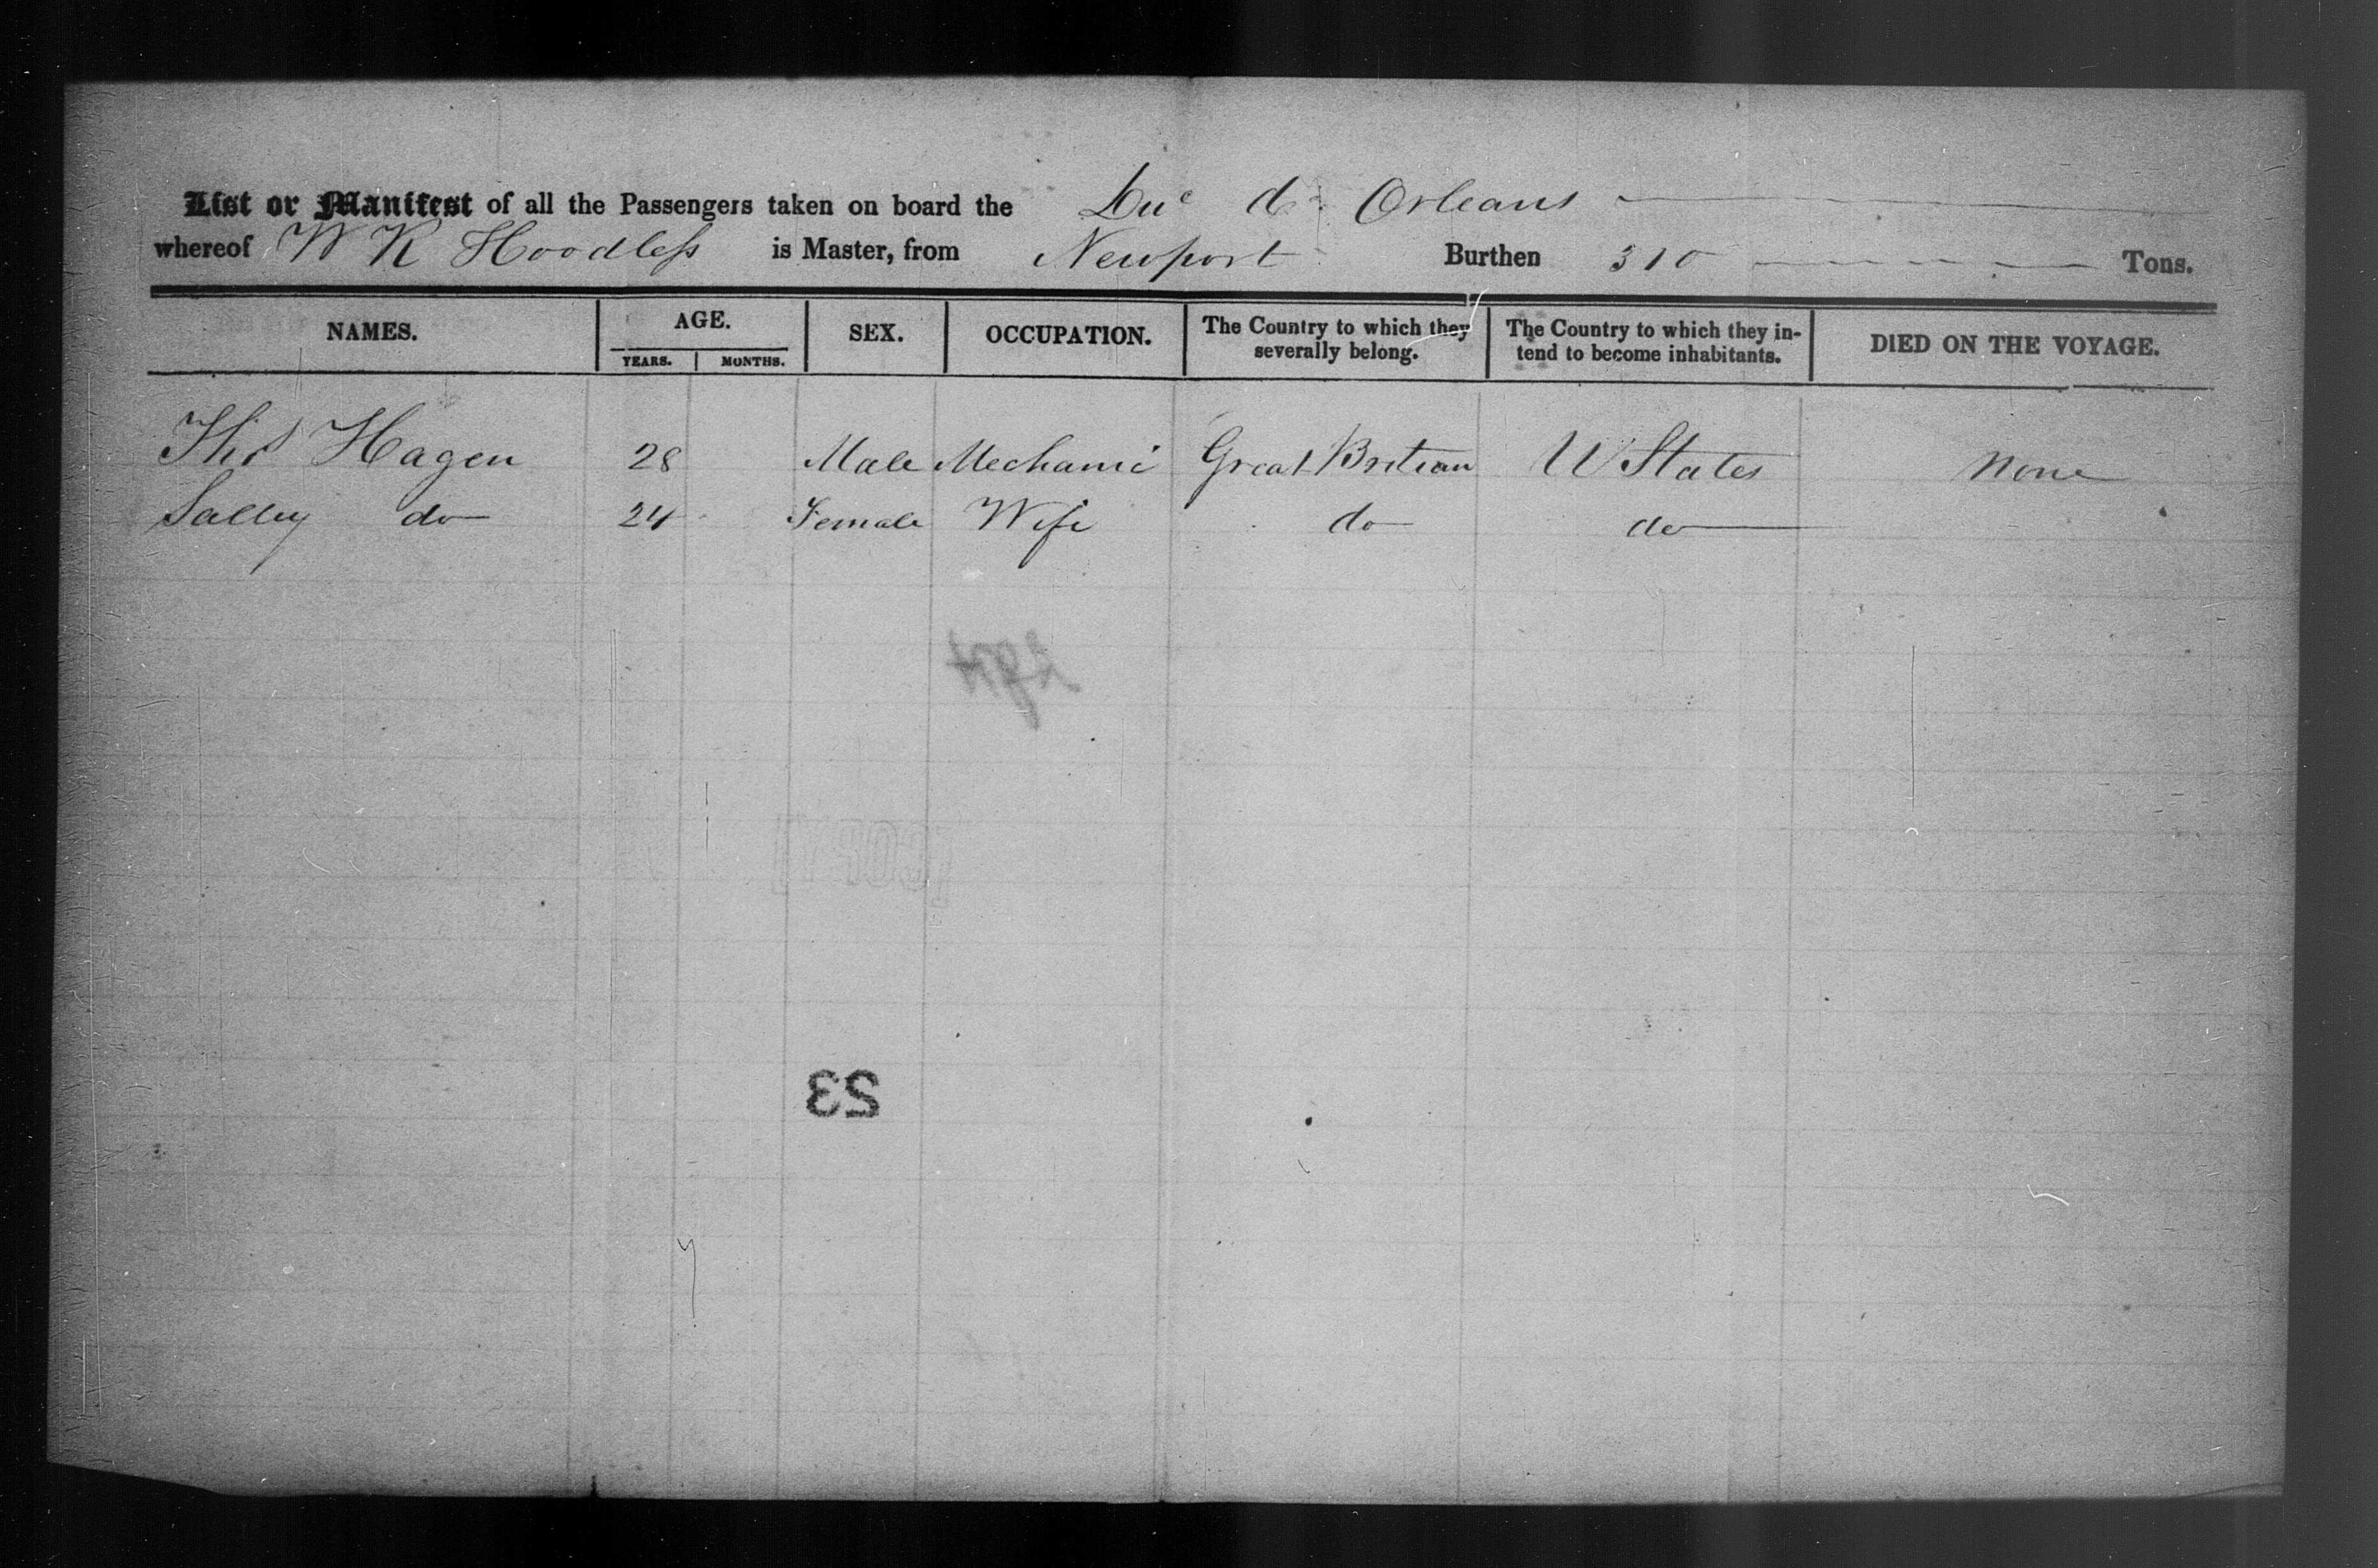 List or Manifest of all the Passengers taken on board the Duc de Orleans
whereof W K Hoodless is Master, from Newport Burthen 310 Tons.
NAMES. AGE. SEX. OCCUPATION. The Country to which they severally belong. The Country to which they intend to become inhabitants. DIED ON THE VOYAGE.
YEARS. MONTHS.
Thos Hagen 28 Male Mechanic Great Britian U States None
Salley do 24 Female Wife do do
23